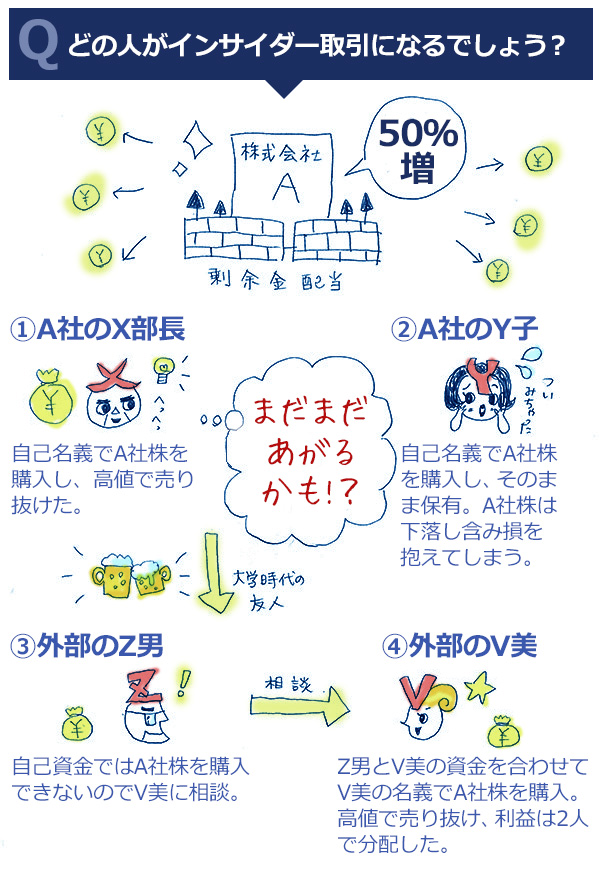 Q どの人がインサイダー取引になるでしょう?
株式会社
A
50%
増
剰余金配当
①A社のX部長
②A社のY子
へっへっ
つい
みちゃった
まだまだ
あがる
かも!?
自己名義でA社株を
購入し、高値で売り
抜けた。
自己名義でA社株
を購入し、そのま
ま保有。A社株は
下落し含み損を
抱えてしまう。
大学時代の
友人
③外部のZ男
④外部のV美
Z
!
相談
V
自己資金ではA社株を購入
できないのでV美に相談。
Z男とV美の資金を合わせて
V美の名義でA社株を購入。
高値で売り抜け、利益は2人
で分配した。